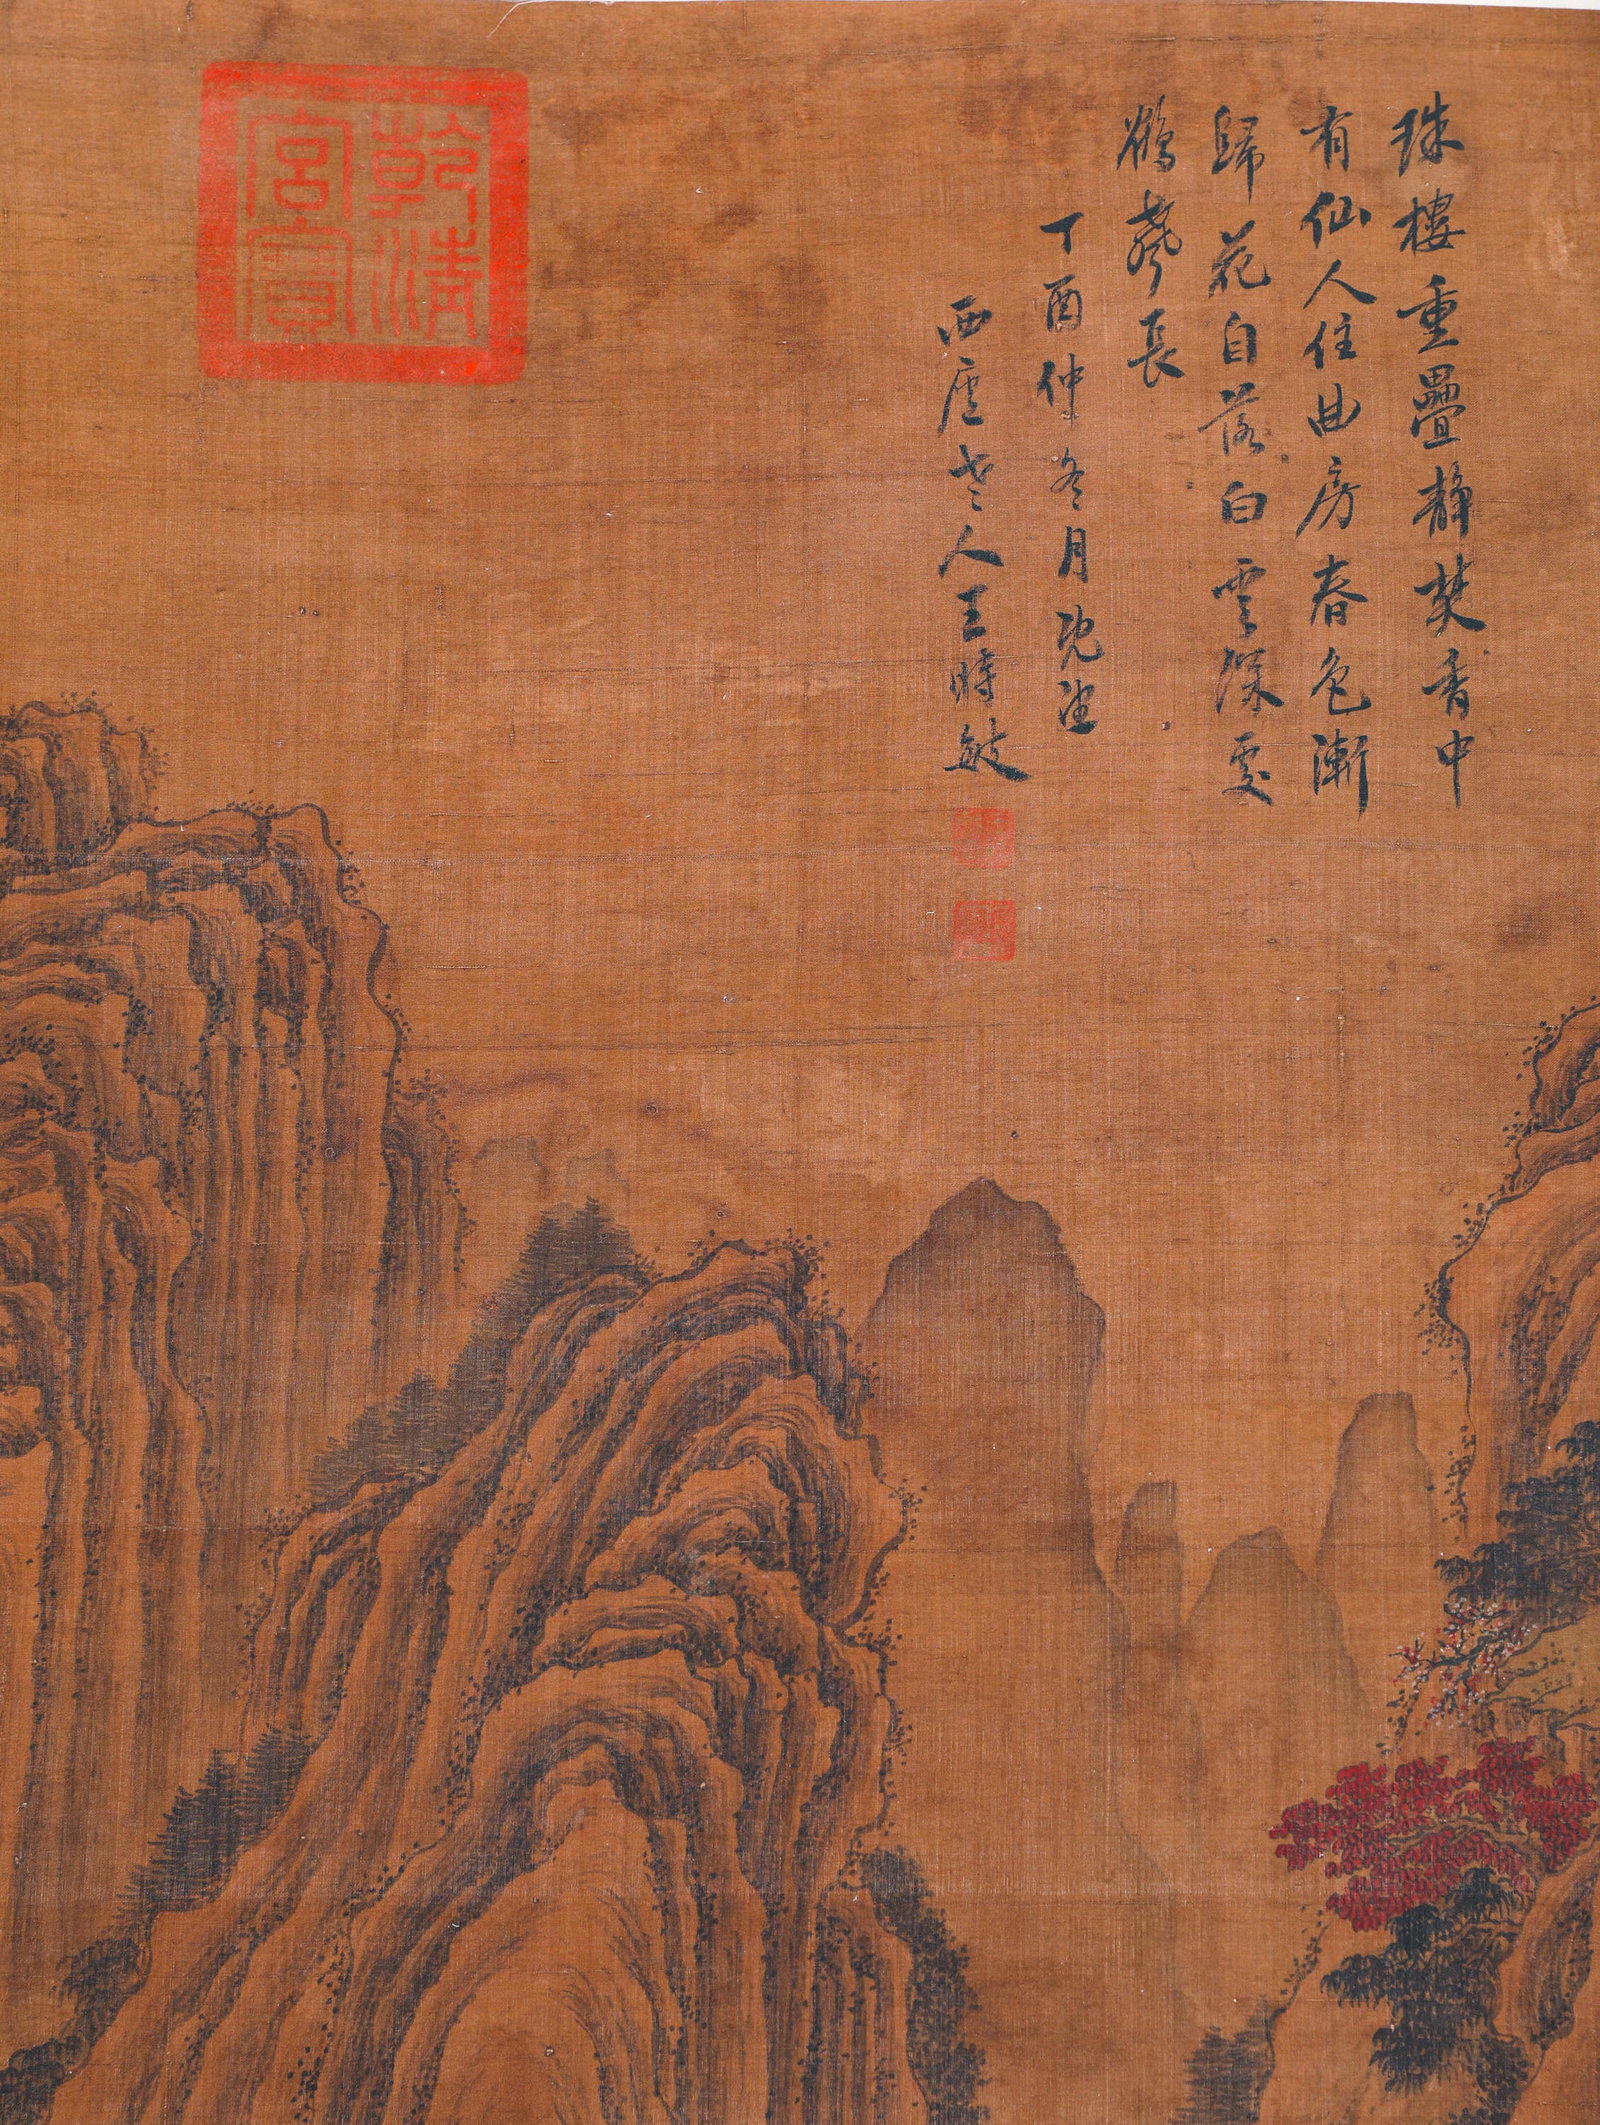 珠樓重疊靜焚香中
有仙人住曲房春色漸
歸花自落白雲深處
鶴聲長
丁酉仲冬月既望
西廬老人王時敏
乾清
宮寶